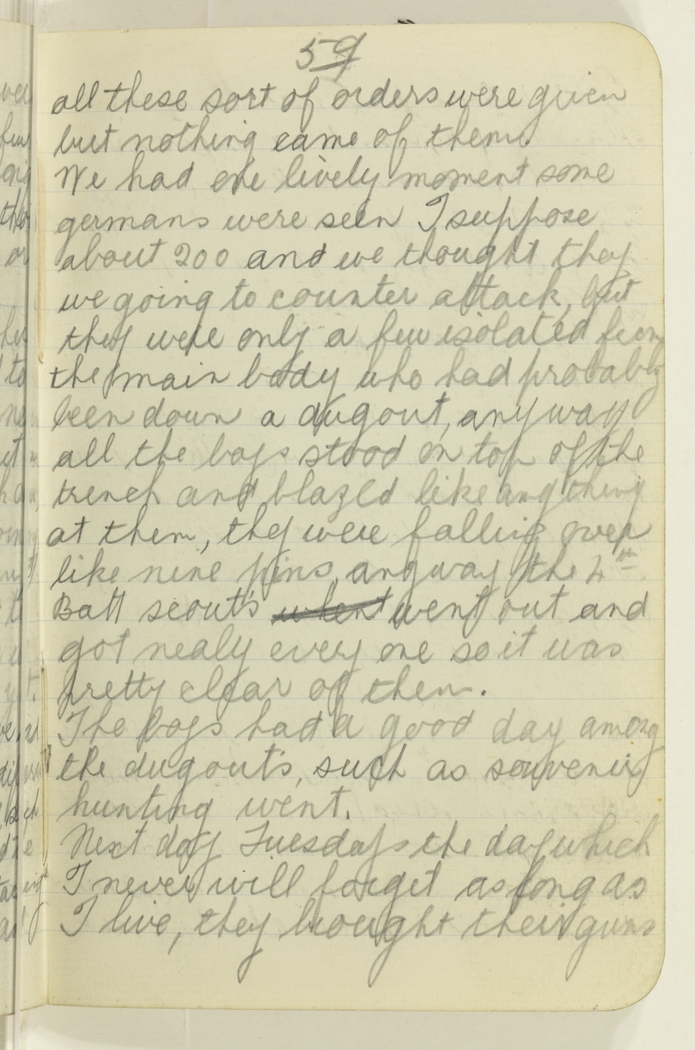 59
all these sort of orders were given
but nothing came of them.
We had one lively moment some
germans were seen I suppose
about 200 and we thought they
we going to counter attack, but
they were only a few isolated from
the main body who had probably
been down a dugout, anyway
all the boys stood on top of the
trench and blazed like anything
at them, they were falling over
like nine pins anyway the 4th
Batt scouts when went out and
got nealy every one so it was
pretty clear of them.
The boys had a good day among
the dugouts, such as souvenir
hunting went.
Next day Tuesdays the day which
I never will forget as long as
I live, they brought their guns